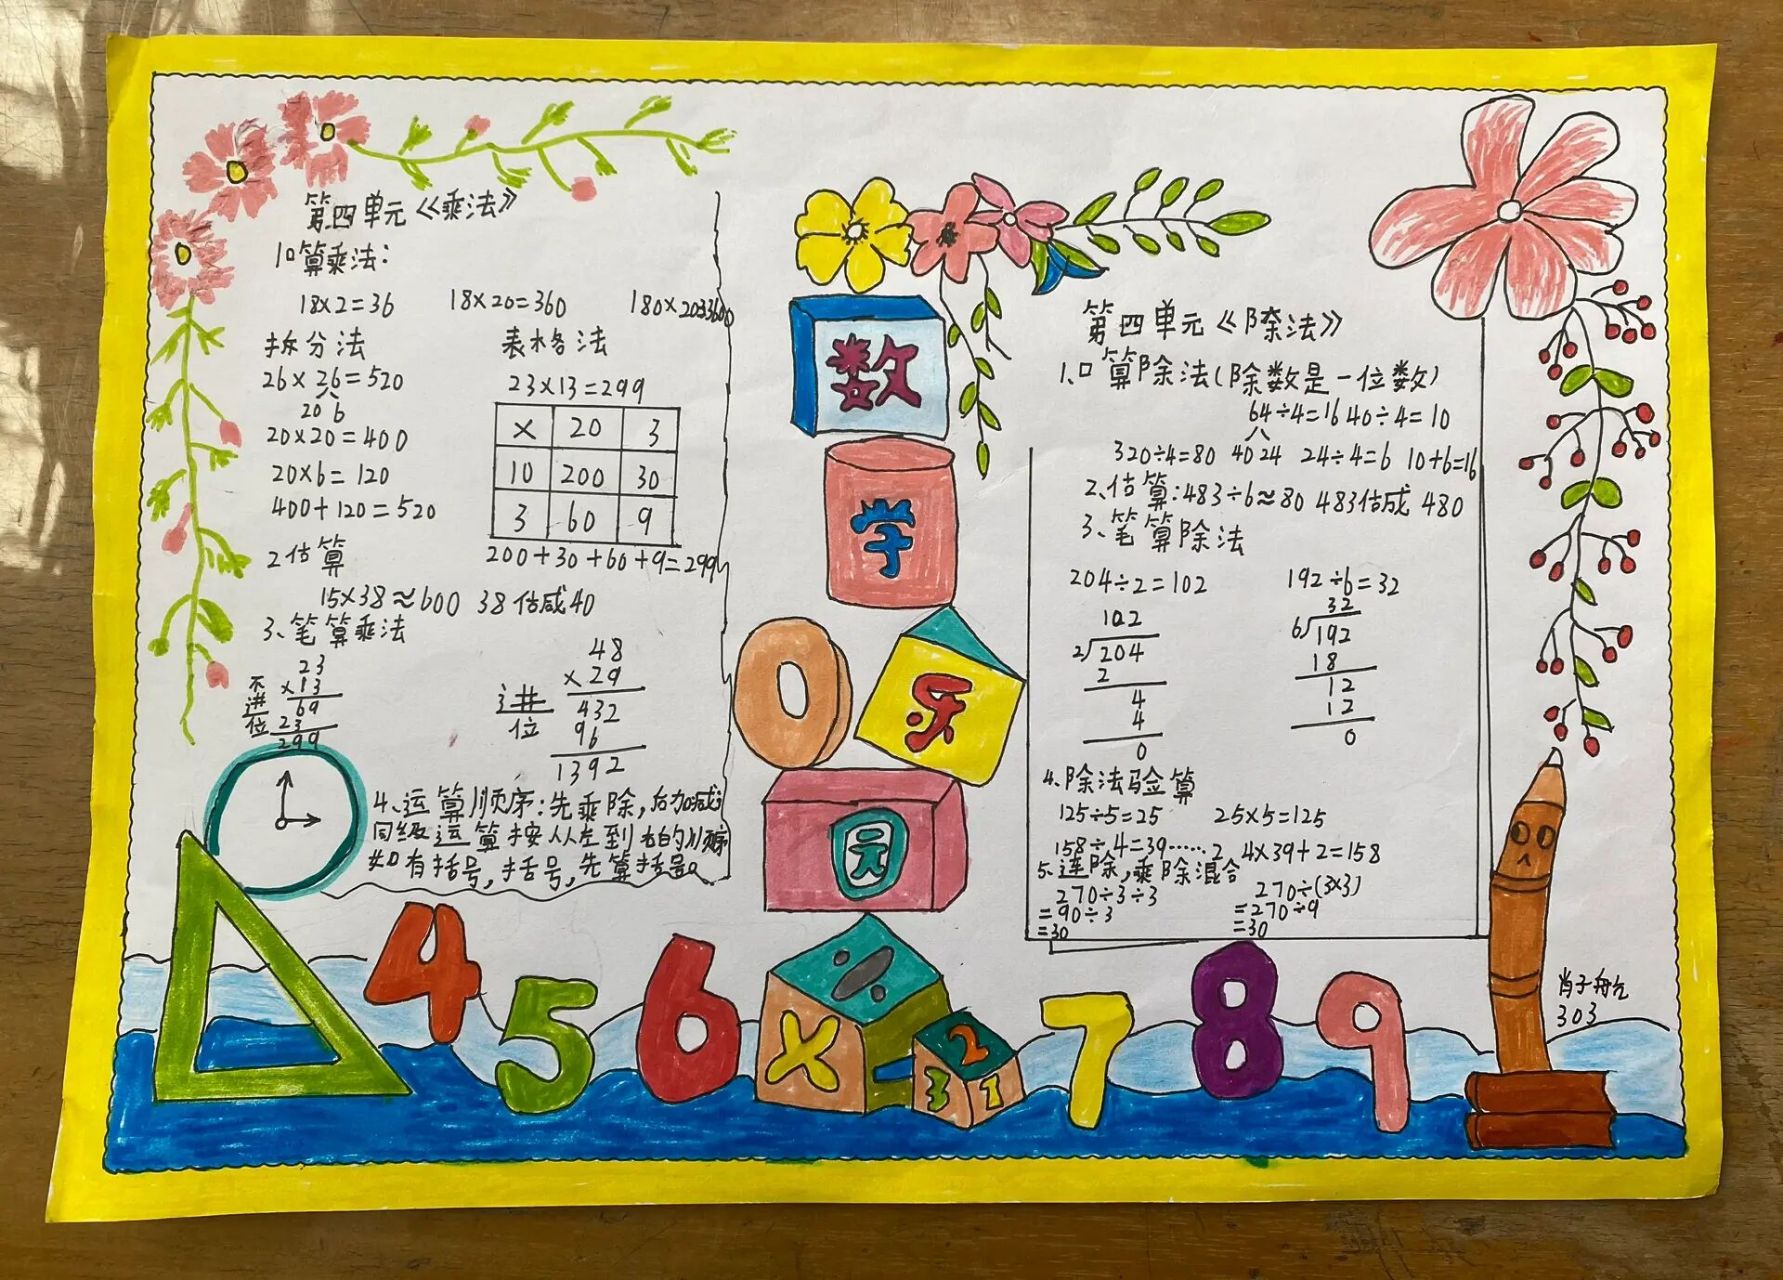 第四单元《乘法》
1口算乘法:
18×2=36 18×20=360 180×20=3600
拆分法 表格法
26×26=520
20 6
20×20=400
20×6=120
400+120=520
23×13=299
× 20 3
10 200 30
3 60 9
200+30+60+9=299
2估算
15×38≈600 38估成40
3、笔算乘法
不进位
23
×13
69
23
299
进位
48
×29
432
96
1392
4、运算顺序:先乘除,后加减
同级运算按从左到右的顺序
如有括号,括号,先算括号。
数
学
乐
园
第四单元《除法》
1、口算除法(除数是一位数)
64÷4=16 40÷4=10
320÷4=80 40 24 24÷4=6 10+6=16
2、估算:483÷6≈80 483估成480
3、笔算除法
204÷2=102
102
2 204
2
4
4
0
192÷6=32
32
6 192
18
12
12
0
4、除法验算
125÷5=25 25×5=125
158÷4=39……2 4×39+2=158
5、连除,乘除混合
270÷3÷3
=90÷3
=30
270÷(3×3)
=270÷9
=30
0
4 5 6 ÷ × - 2 3 1 7 8 9
303